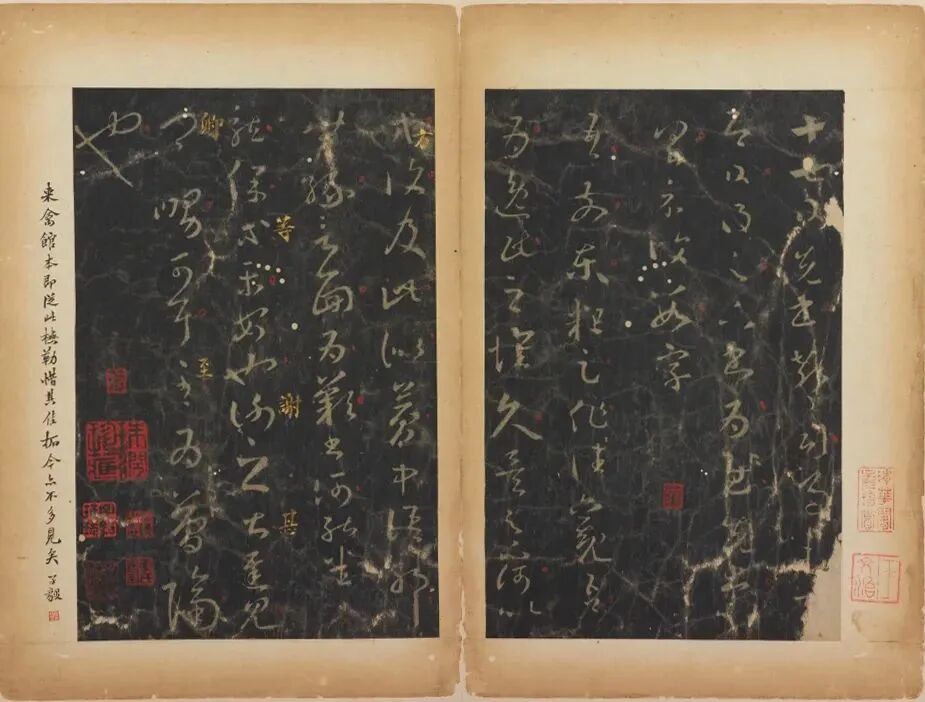 十七日先書郗司馬未去
即日得足下書為慰先書以
具示復數字
吾前東粗足作佳觀吾
為逸民之懷久矣足下何以
方復及此似夢中語耶
無緣言面為歎書何能悉
龍保等平安也謝之甚遲見
卿舅可耳至為簡隔
也
方
等
謝
甚
卿
至
來禽館本即從此橅勒惜其佳拓今亦不多見矣 公毅